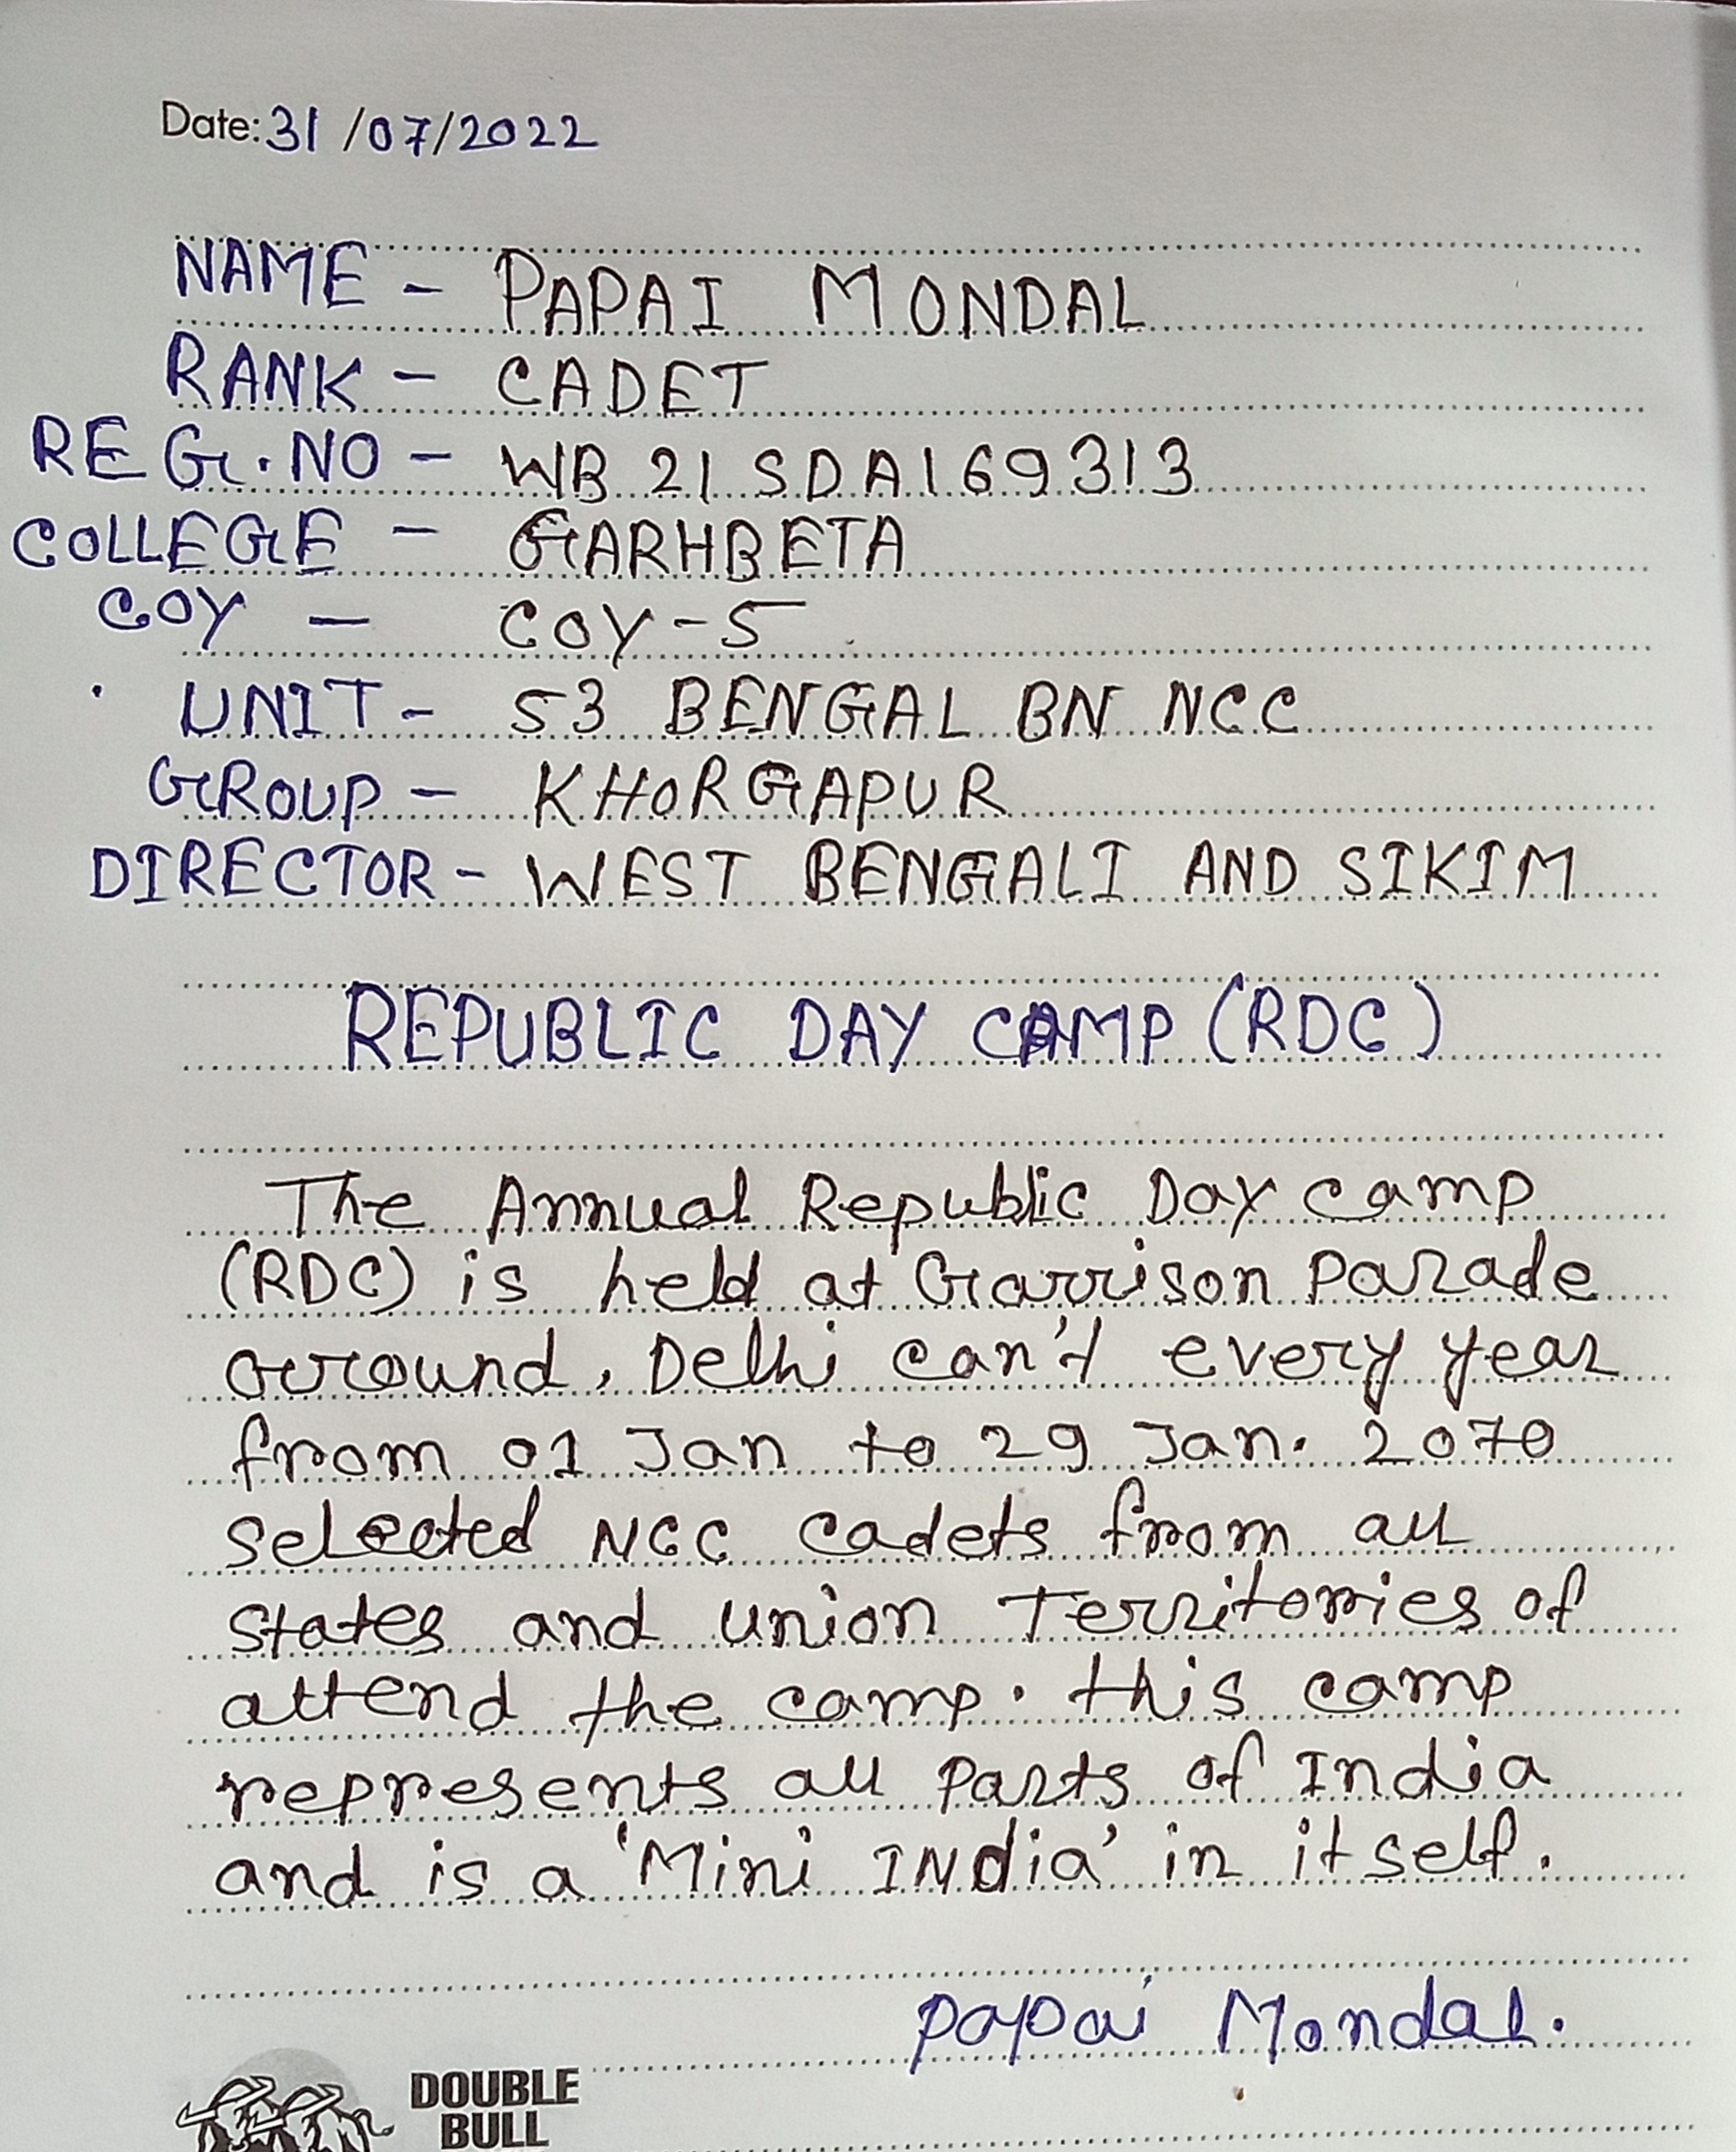 Date: 31/07/2022
NAME - PAPAI MONDAL
RANK - CADET
REG.NO - WB 21 SDA169313
COLLEGE - GARHBETA
COY - COY-5
UNIT - 53 BENGAL BN NCC
GROUP - KHORGAPUR
DIRECTOR - WEST BENGALI AND SIKIM
REPUBLIC DAY CAMP (RDC)
The Annual Republic Day camp
(RDC) is held at Garrison Parade
Ground, Delhi can't every year
from 01 Jan to 29 Jan. 2070
selected NCC cadets from all
states and union Territories of
attend the camp. this camp
represents all Parts of India
and is a 'Mini INdia' in itself.
Papai Mondal.
DOUBLE
BULL